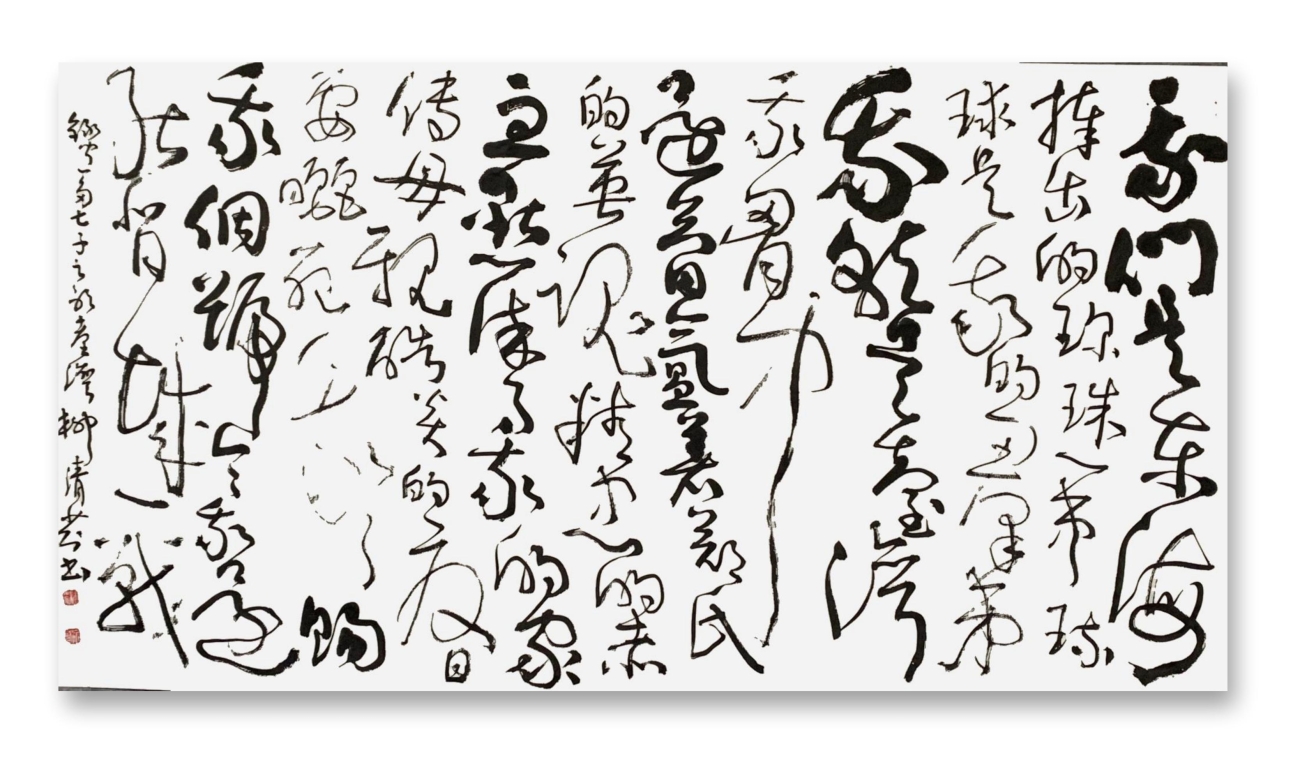 我們是东海
捧出的珍珠一串琉
球是我的群弟
我就是臺灣
我胸中
還氤氲着鄭氏
的英魂精忠的赤
血點染了我的家
傳母親酷炎的夏日
要曬死我了賜
我個號令我還
能背城一戰
錄聞一多七子之歌臺灣 柳清 书